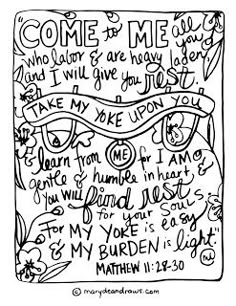 "COME to ME all you
who labor & are heavy laden,
and I will give you rest.
TAKE MY YOKE UPON YOU
& learn from ME for I AM
gentle & humble in heart, &
you will find rest
for your souls.
For MY YOKE is easy
& MY BURDEN is light."
MATTHEW 11:28-30
© marydeandraws.com